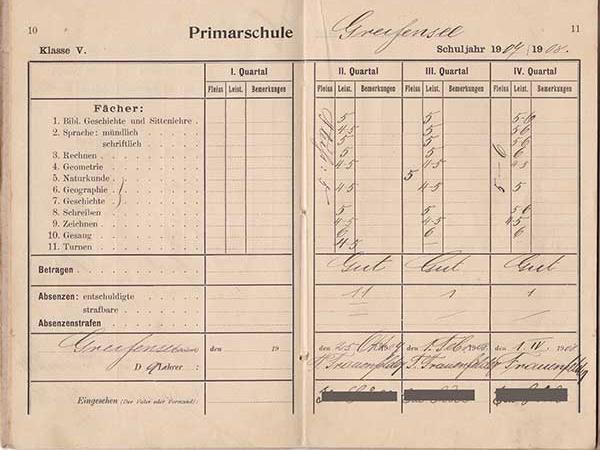 10
Primarschule Greifensee
11
Klasse V.
Schuljahr 1907/1908.
I. Quartal II. Quartal III. Quartal IV. Quartal
Fleiss Leist. Bemerkungen Fleiss Leist. Bemerkungen Fleiss Leist. Bemerkungen Fleiss Leist. Bemerkungen
Fächer:
1. Bibl. Geschichte und Sittenlehre . 5 5 5-6
2. Sprache: mündlich 4-5 5 5-6
schriftlich 5 5 5-6
3. Rechnen 5 5 6
4. Geometrie 4-5 4-5 4-5
5. Naturkunde 5 5-6
6. Geographie 4-5 4-5 5
7. Geschichte
8. Schreiben 5 5 5-6
9. Zeichnen 4-5 4-5 4-5
10. Gesang 6 6 6
11. Turnen 4-5 –
Betragen Gut Gut Gut
Absenzen: entschuldigte 11 1 1
strafbare
Absenzenstrafen
Greifensee den 19 den 25 Okt. 1907 den 1. Feb. 1908. den 1. IV. 1908
D Lehrer : Frauenfelder F. Frauenfelder Frauenfelder
Eingesehen (Der Vater oder Vormund):